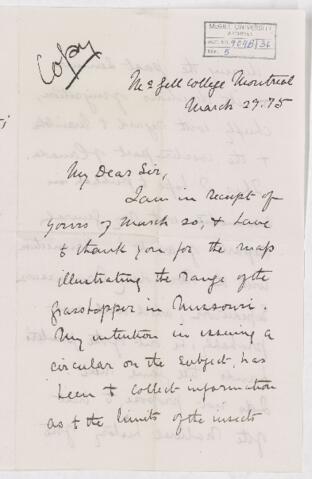 Copy
McGILL UNIVERSITY
ARCHIVES
ACC. NO. 909B/36
REF. 5
McGill College Montreal
March 27. 75
My Dear Sir,
I am in receipt of
yours of March 20, & have
to thank you for the map
illustrating the range of the
grasshopper in Missouri.
My intention in issuing a
circular on the subject, has
been to collect information
as to the limits of the insects